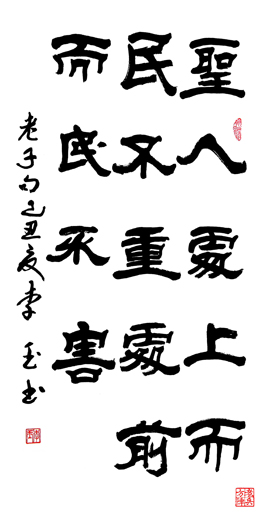 聖人處上而
民不重處前
而民不害
老子句己丑夏李玉书